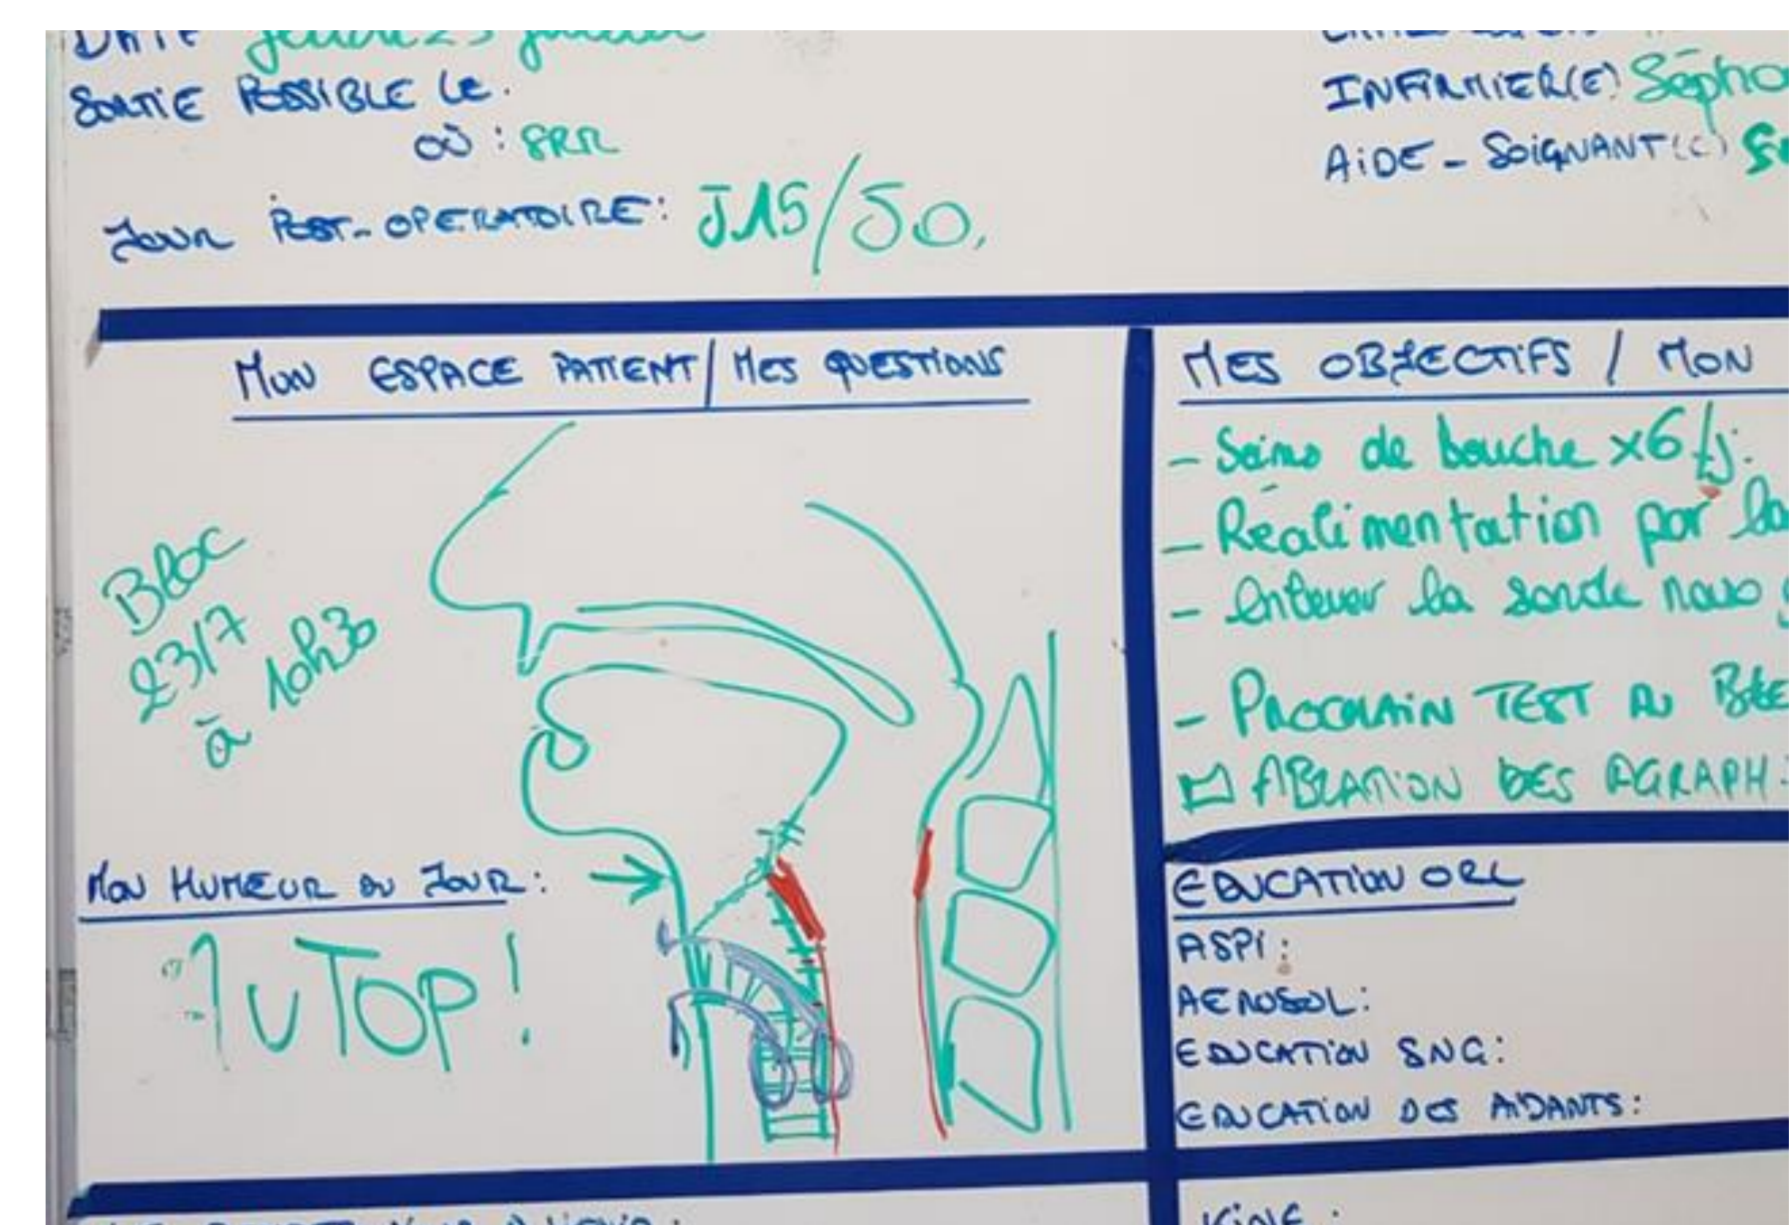 DATE jeudi 23
SORTIE POSSIBLE LE.
OÙ : SRR
JOUR POST-OPERATOIRE: J15/J0.
INFIRMIER(E)
AIDE-SOIGNANT(E)
MON ESPACE PATIENT / MES QUESTIONS
BLOC
23/7
à 10h30
MON HUMEUR DU JOUR:
AU TOP!
MES OBJECTIFS / MON
- Soins de bouche x6/j.
- Réalimentation par la
- enlever la sonde naso
- PROCHAIN TEST AU
ABLATION DES AGRAPH
EDUCATION ORL
ASPI:
AEROSOL:
EDUCATION SNG:
EDUCATION DES AIDANTS:
KINE: